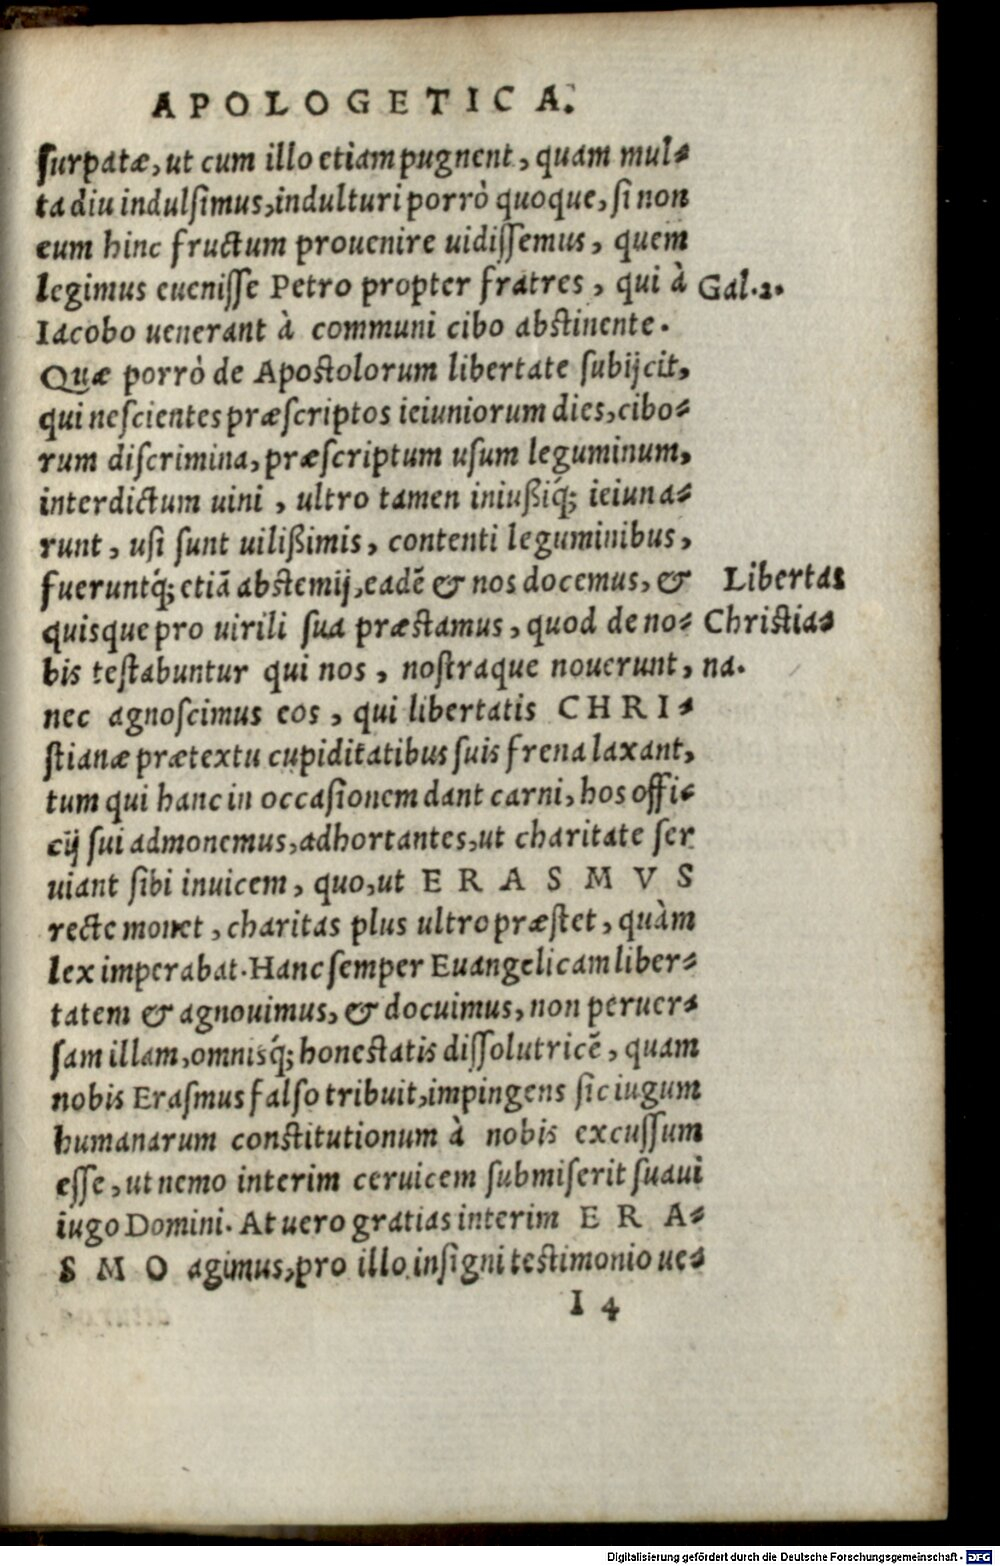 APOLOGETICA.
surpatæ, ut cum illo etiam pugnent, quam mul-
ta diu indulsimus, indulturi porrò quoque, si non
eum hinc fructum prouenire uidissemus, quem
legimus euenisse Petro propter fratres, qui à
Gal.2.
Iacobo uenerant à communi cibo abstinente.
Quæ porrò de Apostolorum libertate subijcit,
qui nescientes præscriptos ieiuniorum dies, cibo-
rum discrimina, præscriptum usum leguminum,
interdictum uini, ultro tamen iniußiq́; ieiuna-
runt, usi sunt uilißimis, contenti leguminibus,
fueruntq́; etiā abstemij, eadē & nos docemus, &
Libertas
quisque pro uirili sua præstamus, quod de no-
Christia-
bis testabuntur qui nos, nostraque nouerunt,
na.
nec agnoscimus eos, qui libertatis CHRI-
stianæ prætextu cupiditatibus suis frena laxant,
tum qui hanc in occasionem dant carni, hos offi-
cij sui admonemus, adhortantes, ut charitate ser
uiant sibi inuicem, quo, ut ERASMVS
recte monet, charitas plus ultro præstet, quàm
lex imperabat. Hanc semper Euangelicam liber-
tatem & agnouimus, & docuimus, non peruer-
sam illam, omnisq́; honestatis dissolutricē, quam
nobis Erasmus falso tribuit, impingens sic iugum
humanarum constitutionum à nobis excussum
esse, ut nemo interim ceruicem submiserit suaui
iugo Domini. At uero gratias interim ERA-
SMO agimus, pro illo insigni testimonio ue-
I 4
Digitalisierung gefördert durch die Deutsche Forschungsgemeinschaft - DFG